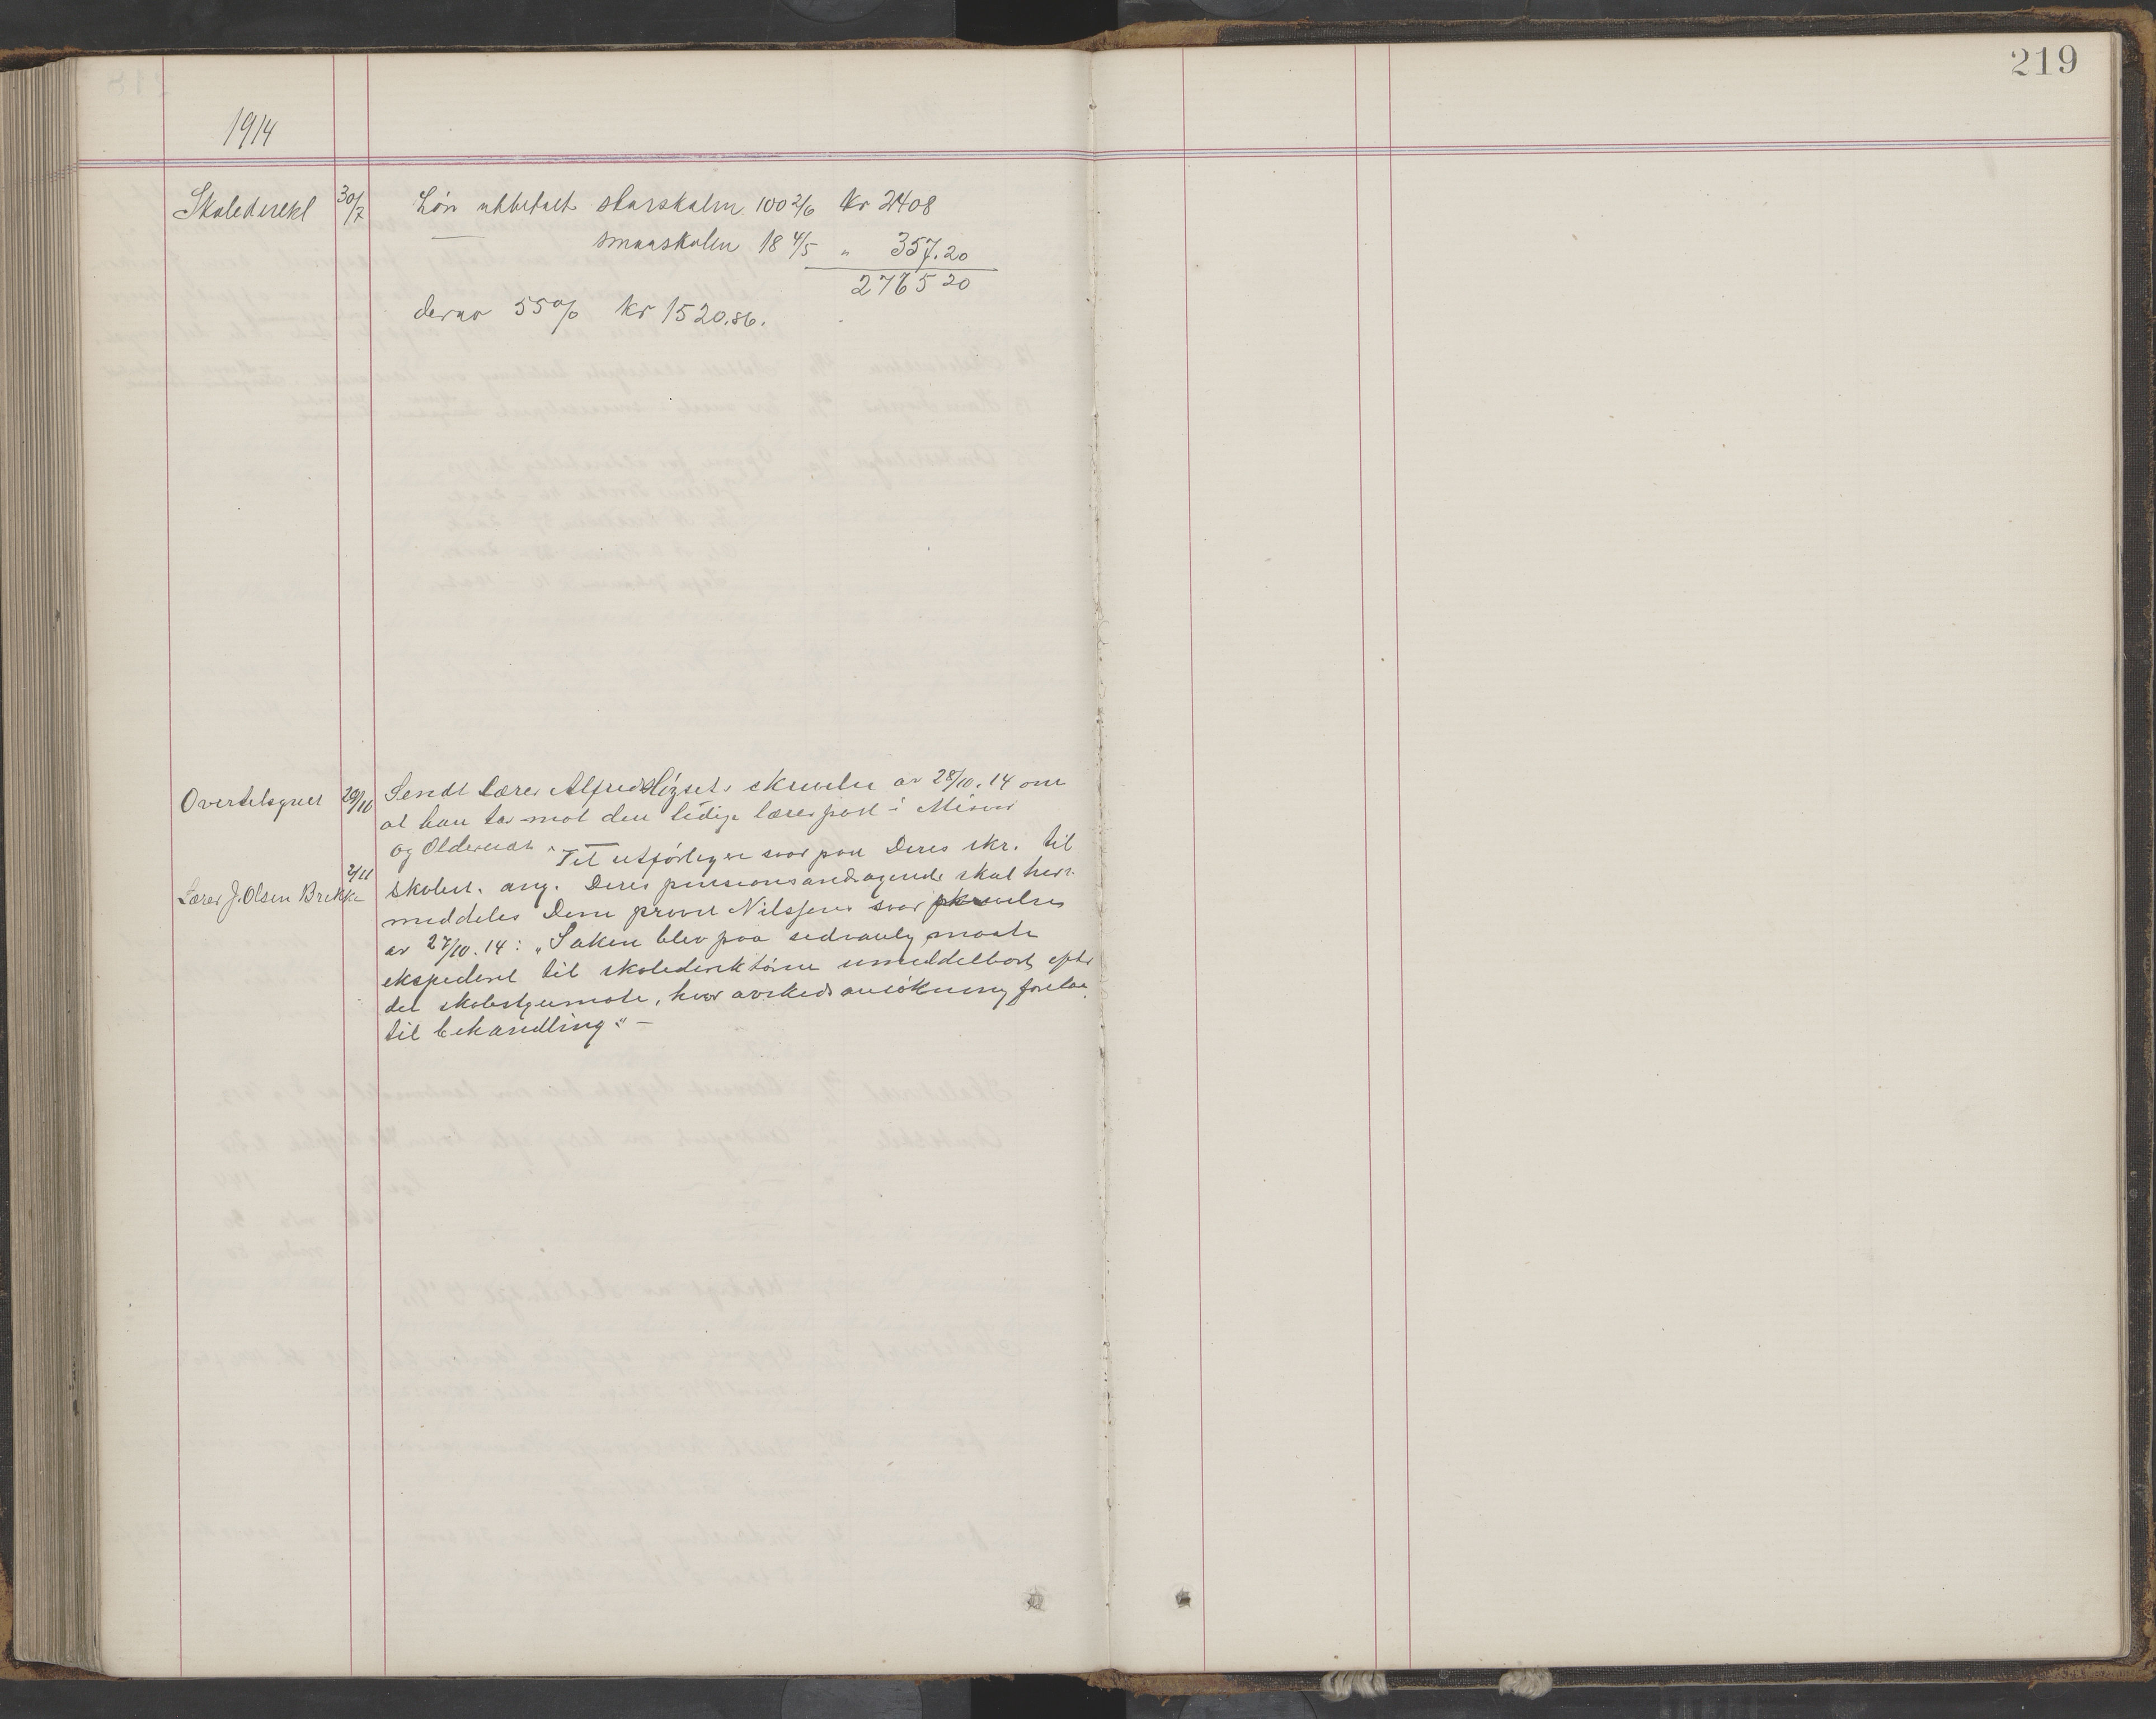 219
1914
Skoledirekt 30/7 Løn utbetalt storskolen 100 2/6 kr 2408
smaaskolen 18 4/5 " 357.20
2765 20
derav 55% kr 1520.86.
Overtilsynet 29/10 Sendt Lærer Alfred skrivelse av 28/10. 14 om
at han tar mot den ledige lærerpost i Misvær
og Oldereidet. —
Lærer J. Olsen Brekke 2/11 Til utførligere svar paa Deres skr. til
skolest. ang. Deres pensionsandragende skal herv.
meddeles Dem provst Nilssens svar skrivelse
av 27/10. 14: "Saken blev paa sedvanlig maate
ekspedert til skoledirektøren umiddelbart efter
det skolestyremøte, hvor avskedsansøkning forelaa
til behandling". —